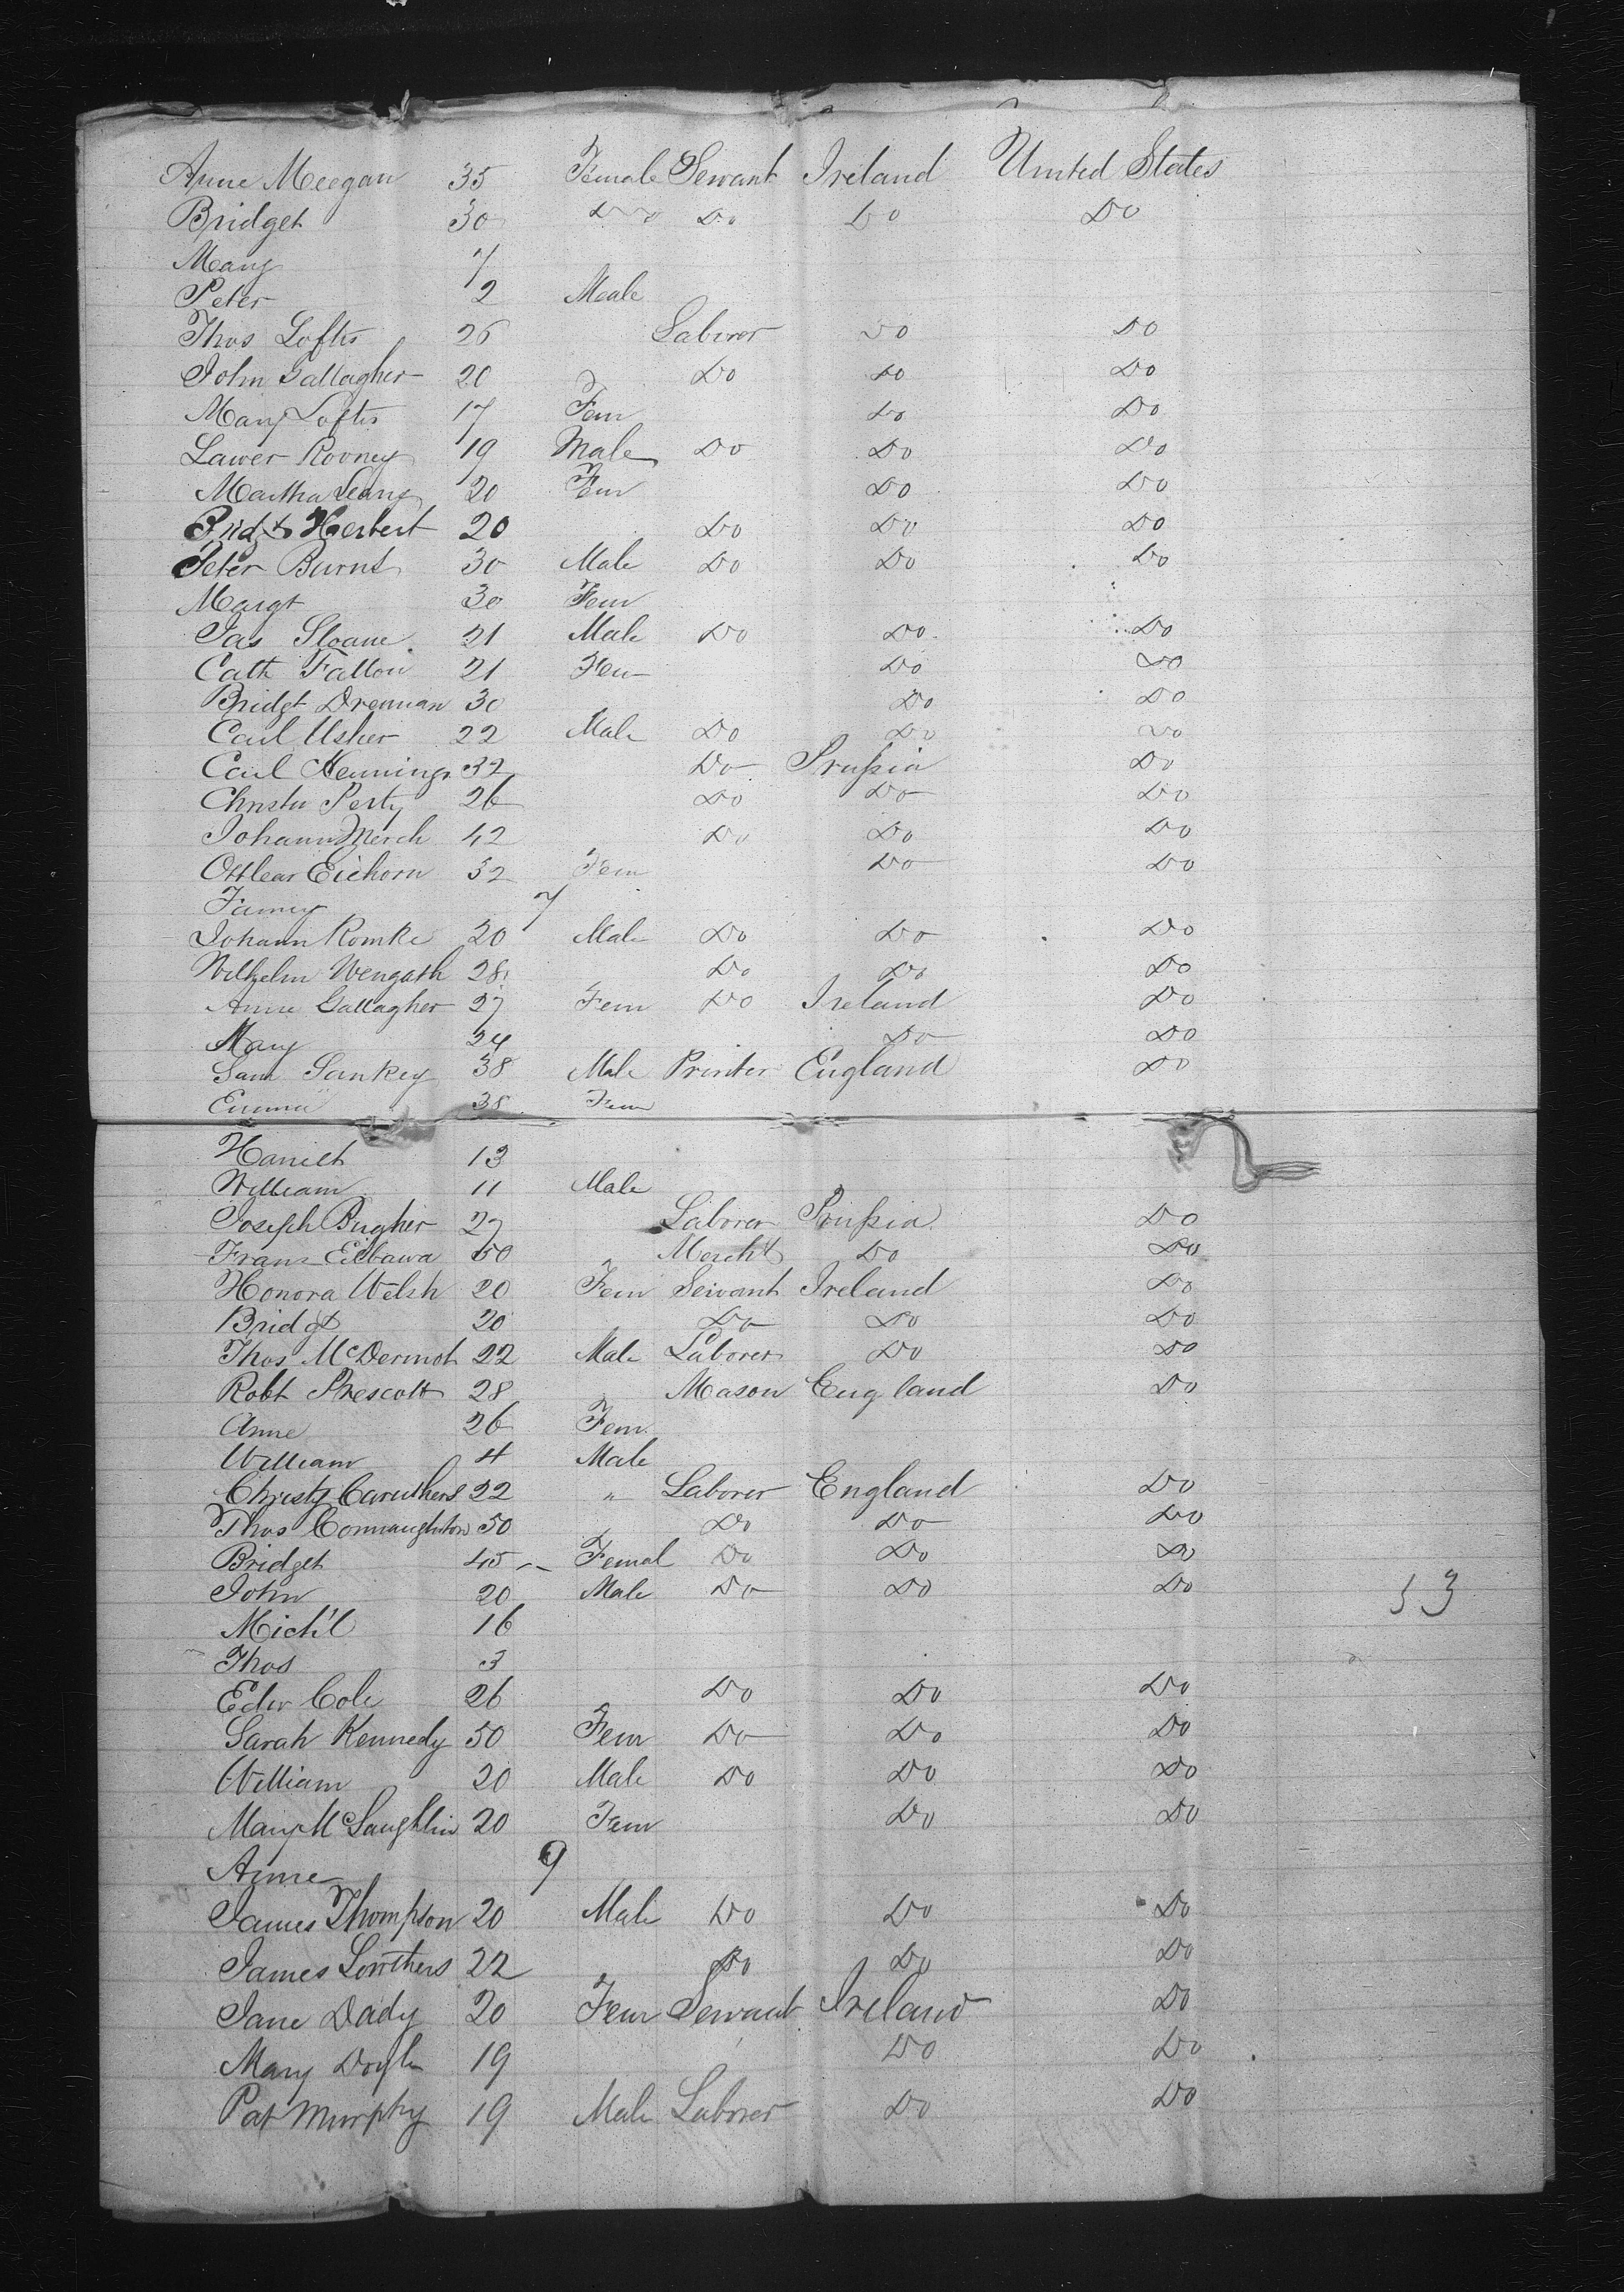 Anne Meegan 35 Female Servant Ireland United States
Bridget 30 Do Do Do Do
Mary 7
Peter 2 Male
Thos Loftis 26 Laborer Do Do
John Gallagher 20 Do Do Do
Mary Loftis 17 Fem Do Do
Lawer Rooney 19 Male Do Do Do
Martha Leary 20 Fem Do Do
Bridgt Herbert 20 Do Do Do
Peter Burns 30 Male Do Do Do
Margt 30 Fem
Jas Sloane 21 Male Do Do Do
Cath Fallon 21 Fem Do Do
Bridgt Drennan 30 Do Do
Carl Usher 22 Male Do Do Do
Carl Hennings 32 Do Prussia Do
Christn Perty 26 Do Do Do
Johann Merch 42 Do Do Do
Eichorn 32 Fem Do Do
Fanny 7
Johann Romke 20 Male Do Do Do
Wilhelm Wengath 28 Do Do Do
Anne Gallagher 27 Fem Do Ireland Do
Mary 24 Do Do
Sam Sankey 38 Male Printer England Do
Emma 38 Fem
Harriet 13
William 11 Male
Joseph Bugher 27 Laborer Prussia Do
Franz 50 " Mercht Do Do
Honora Welsh 20 Fem Servant Ireland Do
Bridgt 20 Do Do Do
Thos McDermot 22 Male Laborer Do Do
Robt Prescott 28 " Mason England Do
Anne 26 Fem
William 4 Male
Christy Caruthers 22 " Laborer England Do
Thos Connaughton 50 " Do Do Do
Bridget 45 Femal Do Do Do
John 20 Male Do Do Do 53
Mich'l 16
Thos 3
Edw Cole 26 Do Do Do
Sarah Kennedy 50 Fem Do Do Do
William 20 Male Do Do Do
Mary McLaughlin 20 Fem Do Do
Anne 9
James Thompson 20 Male Do Do Do
James Lowthers 22 Do Do Do
Jane Dady 20 Fem Servant Ireland Do
Mary Doyle 19 Do Do
Pat Murphy 19 Male Laborer Do Do